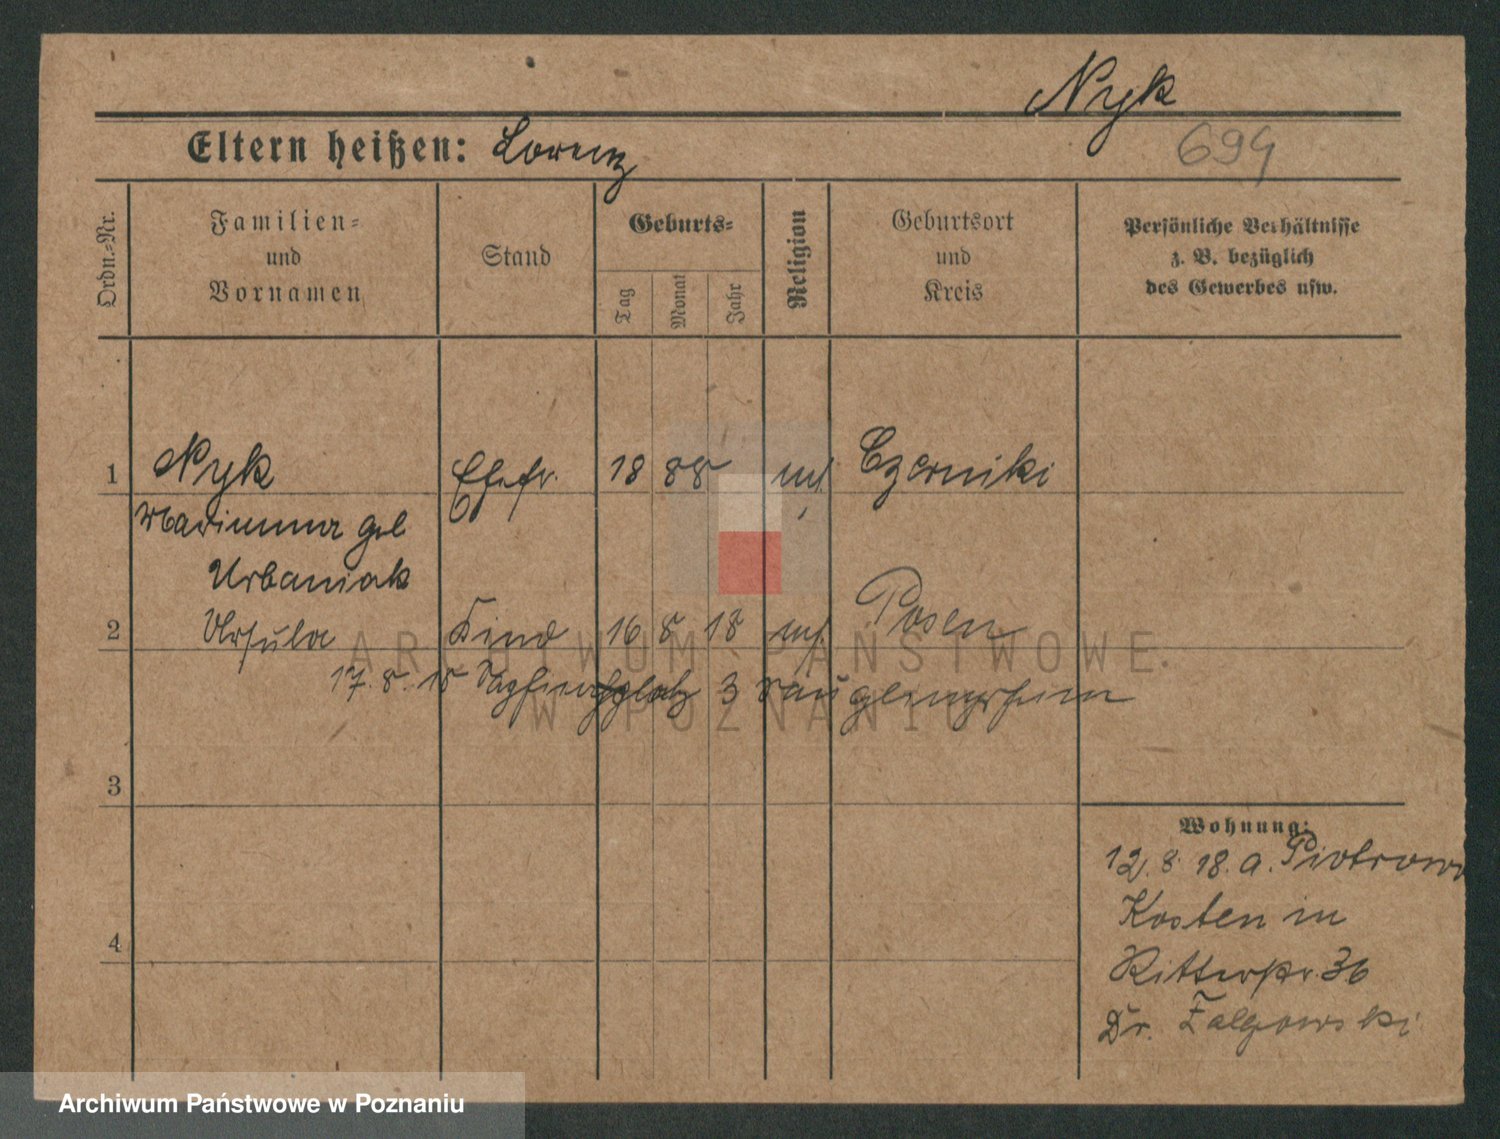 Nyk
694
Eltern heißen: Lorenz
Ordn.-Nr.
Familien-
und
Vornamen
Stand
Geburts-
Tag
Monat
Jahr
Religion
Geburtsort
und
Kreis
Persönliche Verhältnisse
z. B. bezüglich
des Gewerbes usw.
1 Nyk Ehefr. 18 8 8 Czerniki
Marianna geb
Urbaniak
2 Ursula Kind 16 8 18 Posen
ARCHIWUM PAŃSTWOWE
17. 8. 18 3 Säuglingsheim
W POZNANIU
3
Wohnung:
12. 8. 18. a. Piotrowo
Kosten in
4
Ritterstr. 36
Dr.
Archiwum Państwowe w Poznaniu